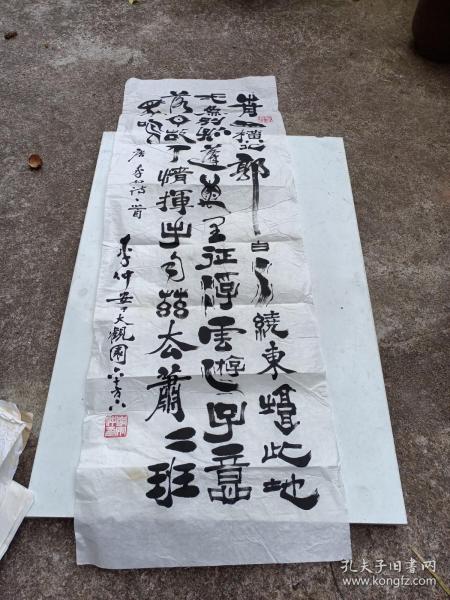 青山橫北郭一白水繞東城此地
一爲別孤蓬萬里征浮雲游子意
落日故人情揮手自茲去蕭二班
馬鳴
唐李白詩一首
李仲安大觀園六十有八
孔夫子旧书网
www.kongfz.com